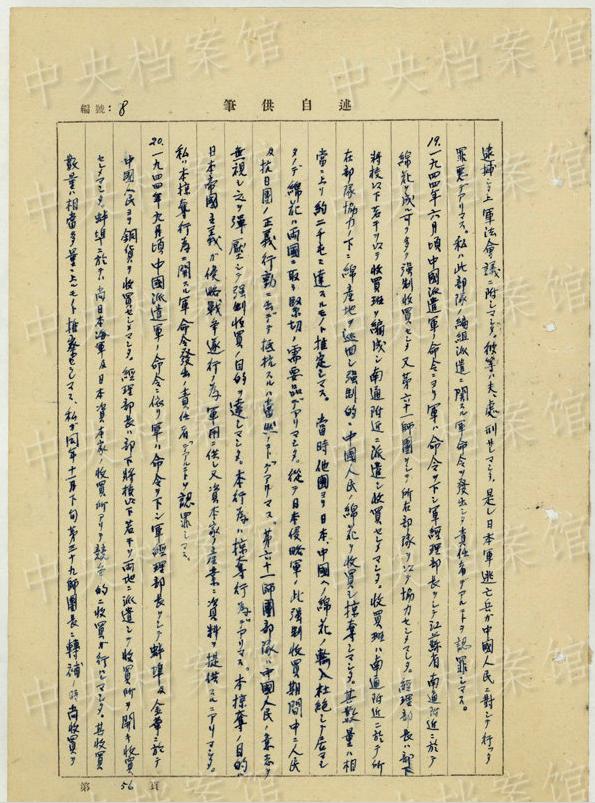 述自供筆
編號：8
逮捕シ上軍法会議ニ附シマシタ。彼等ハ夫々処刑サレマシタ。是レ日本軍逃亡兵ガ中國人民ニ対シテ行ツタ
罪悪デアリマス。私ハ此部隊ノ編組派遣ニ関スル軍命令ヲ発出シタ責任者デアルコトヲ認罪シマス。
19. 一九四四年六月頃中國派遣軍ノ命令ニヨリ軍ハ命令ヲ下シ軍経理部長ヲシテ江蘇省南通附近ニ於テ
綿花ヲ成ル可ク多ク強制収買セシメ又第六十一師団ヲシテ所在部隊ヲ以テ協力セシメマシタ。経理部長ハ部下
将校以下若干ヲ以テ収買班ヲ編成シ南通附近ニ派遣シ収買セシメマシタ。収買班ハ南通附近ニ於テ所
在部隊協力ノ下ニ綿産地ヲ巡回シ強制的ニ中國人民ノ綿花ヲ収買シ掠奪シマシタ。其数量ハ相
当ニ上リ約二千屯ニ達スルモノト推定シマス。当時他國ヨリ日本、中國ヘノ綿花ノ輸入杜絶シ居マシ
タノデ綿花ハ両國ニ取リ緊切ノ需要品デアリマシタ。従テ日本侵略軍ノ此強制収買期間中ニ人民
及抗日團ノ正義行動ニ出デ抵抗スルハ当然ノコトデアリマス。第六十一師團部隊ハ中國人民ノ意志ヲ
無視シ之ヲ弾壓シテ強制収買ノ目的ヲ達シマシタ。本行為ハ掠奪行為デアリマス。本掠奪ノ目的ハ
日本帝國主義ガ侵略戦争遂行ノ為軍用ニ供シ又資本家ノ産業ニ資料ヲ提供スルニアリマシタ。
私ハ本掠奪行為ニ関スル軍命令発出ノ責任者デアルコトヲ認罪シマス。
20. 一九四四年九月頃中國派遣軍ノ命令ニ依リ軍ハ命令ヲ下シ軍経理部長ヲシテ蚌埠及金華ニ於テ
中國人民ヨリ銅貨ヲ収買セシメマシタ。経理部長ハ部下将校以下若干ヲ両地ニ派遣シテ収買所ヲ開キ収買
セシメマシタ。蚌埠ニ於テハ尚日本海軍及日本資本家ノ収買所アリテ競争的ニ収買ガ行ハレマシタ。其収買
数量ハ相当多量ニ上ルモノト推察セラレマス。私ガ同年十一月下旬第三十九師團長ニ轉補時尚収買ヲ
第 56 頁
中央档案馆